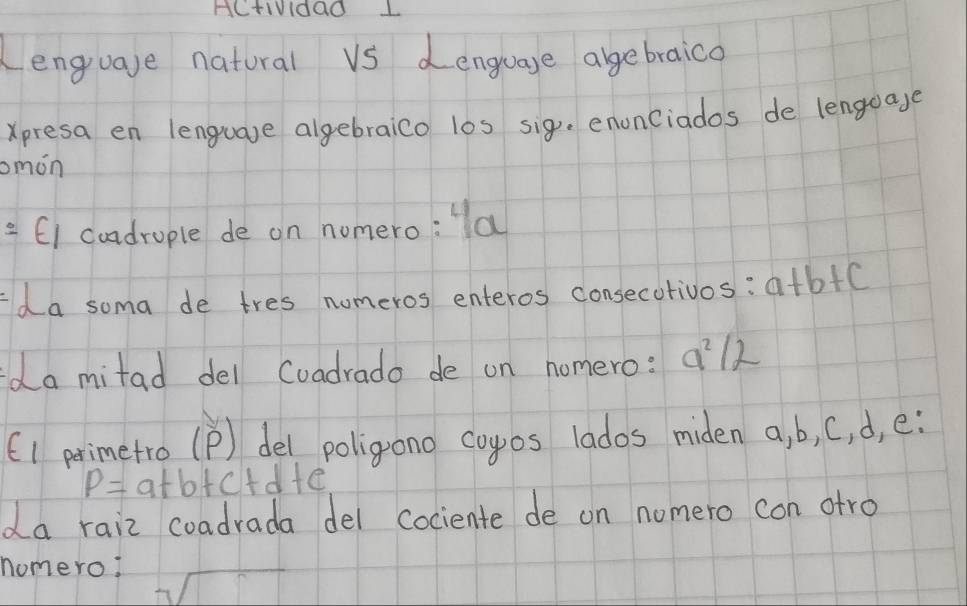 Actividad 1
Lenguaje natural VS Lenguaje algebraico
xpresa en lenguaje algebraico los sig. enunciados de lenguaje
omón
= El cuadruple de un numero: 4a
= La suma de tres numeros enteros consecutivos: a+b+c
- La mitad del cuadrado de un numero: a²/2
El perimetro (P) del poligono cuyos lados miden a, b, c, d, e:
P=a+b+c+d+e
La raiz cuadrada del cociente de un numero con otro
numero:
√